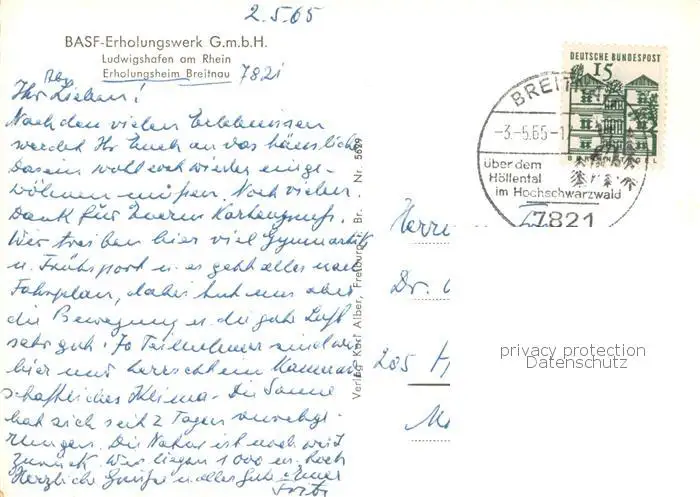 2.5.65
BASF-Erholungswerk G.m.b.H.
Ludwigshafen am Rhein
Erholungsheim Breitnau 7821
Abs.
Ihr Lieben!
Nach den vielen Erlebnissen
werdet Ihr Euch an das häusliche
Dasein wohl erst wieder einge-
wöhnen müssen. Noch vielen
Dank für Eueren Kartengruß.
Wir treiben hier viel Gymnastik
u. Frühsport u. es geht alles nach
Fahrplan, dabei tut uns aber
die Bewegung u. die gute Luft
sehr gut. 70 Teilnehmer sind wir
hier und herrscht ein Kamerad-
schaftliches Klima. Die Sonne
hat sich seit 2 Tagen
Die Natur ist noch weit
zurück. Wir liegen 1000 m hoch
Herzliche Grüße u. alles Gute Euer
Fritz
Verlag Karl Alber, Freiburg i. Br. Nr.
DEUTSCHE BUNDESPOST
15
BREIT
-3.-5.65-1
über dem
Höllental
im Hochschwarzwald
7821
Herrn
Dr.
205 H
privacy protection
Datenschutz